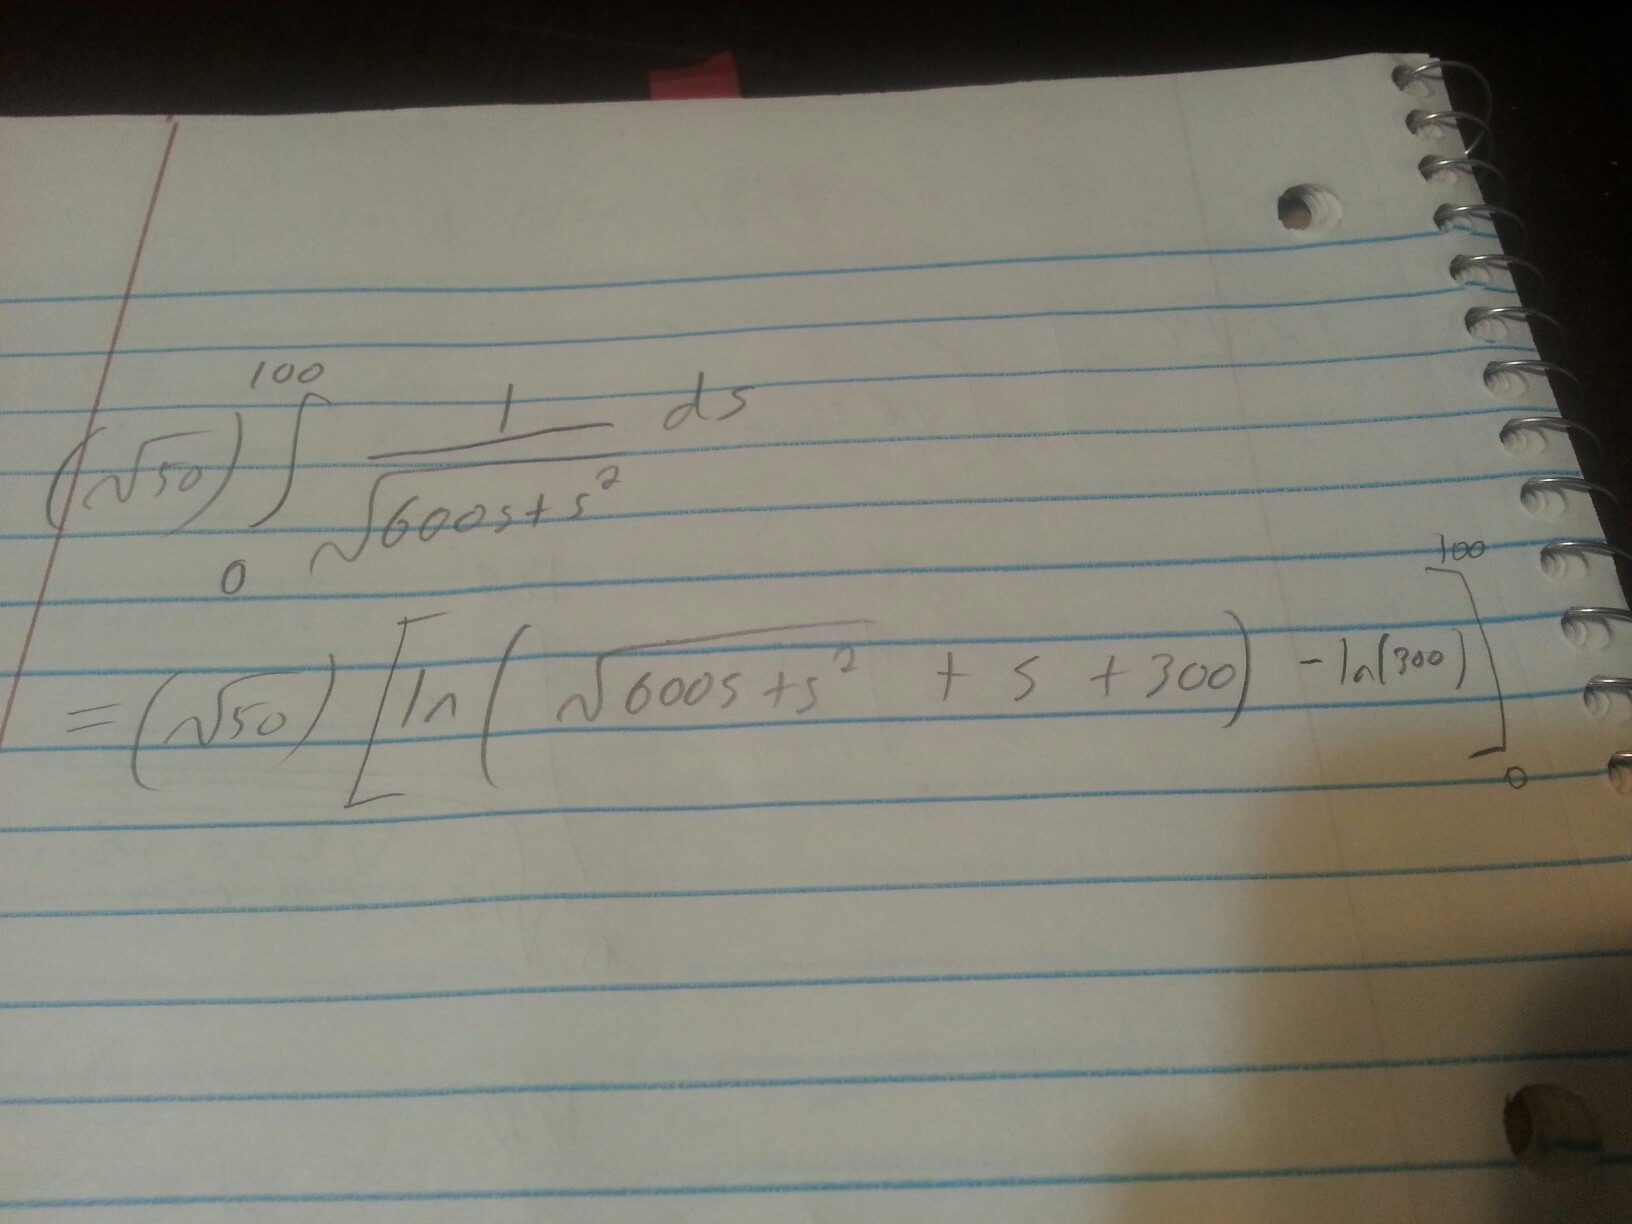 (√50) ∫₀¹⁰⁰ 1/√(600s+s²) ds
= (√50) [ln(√(600s+s²) + s + 300) - ln(300)]₀¹⁰⁰